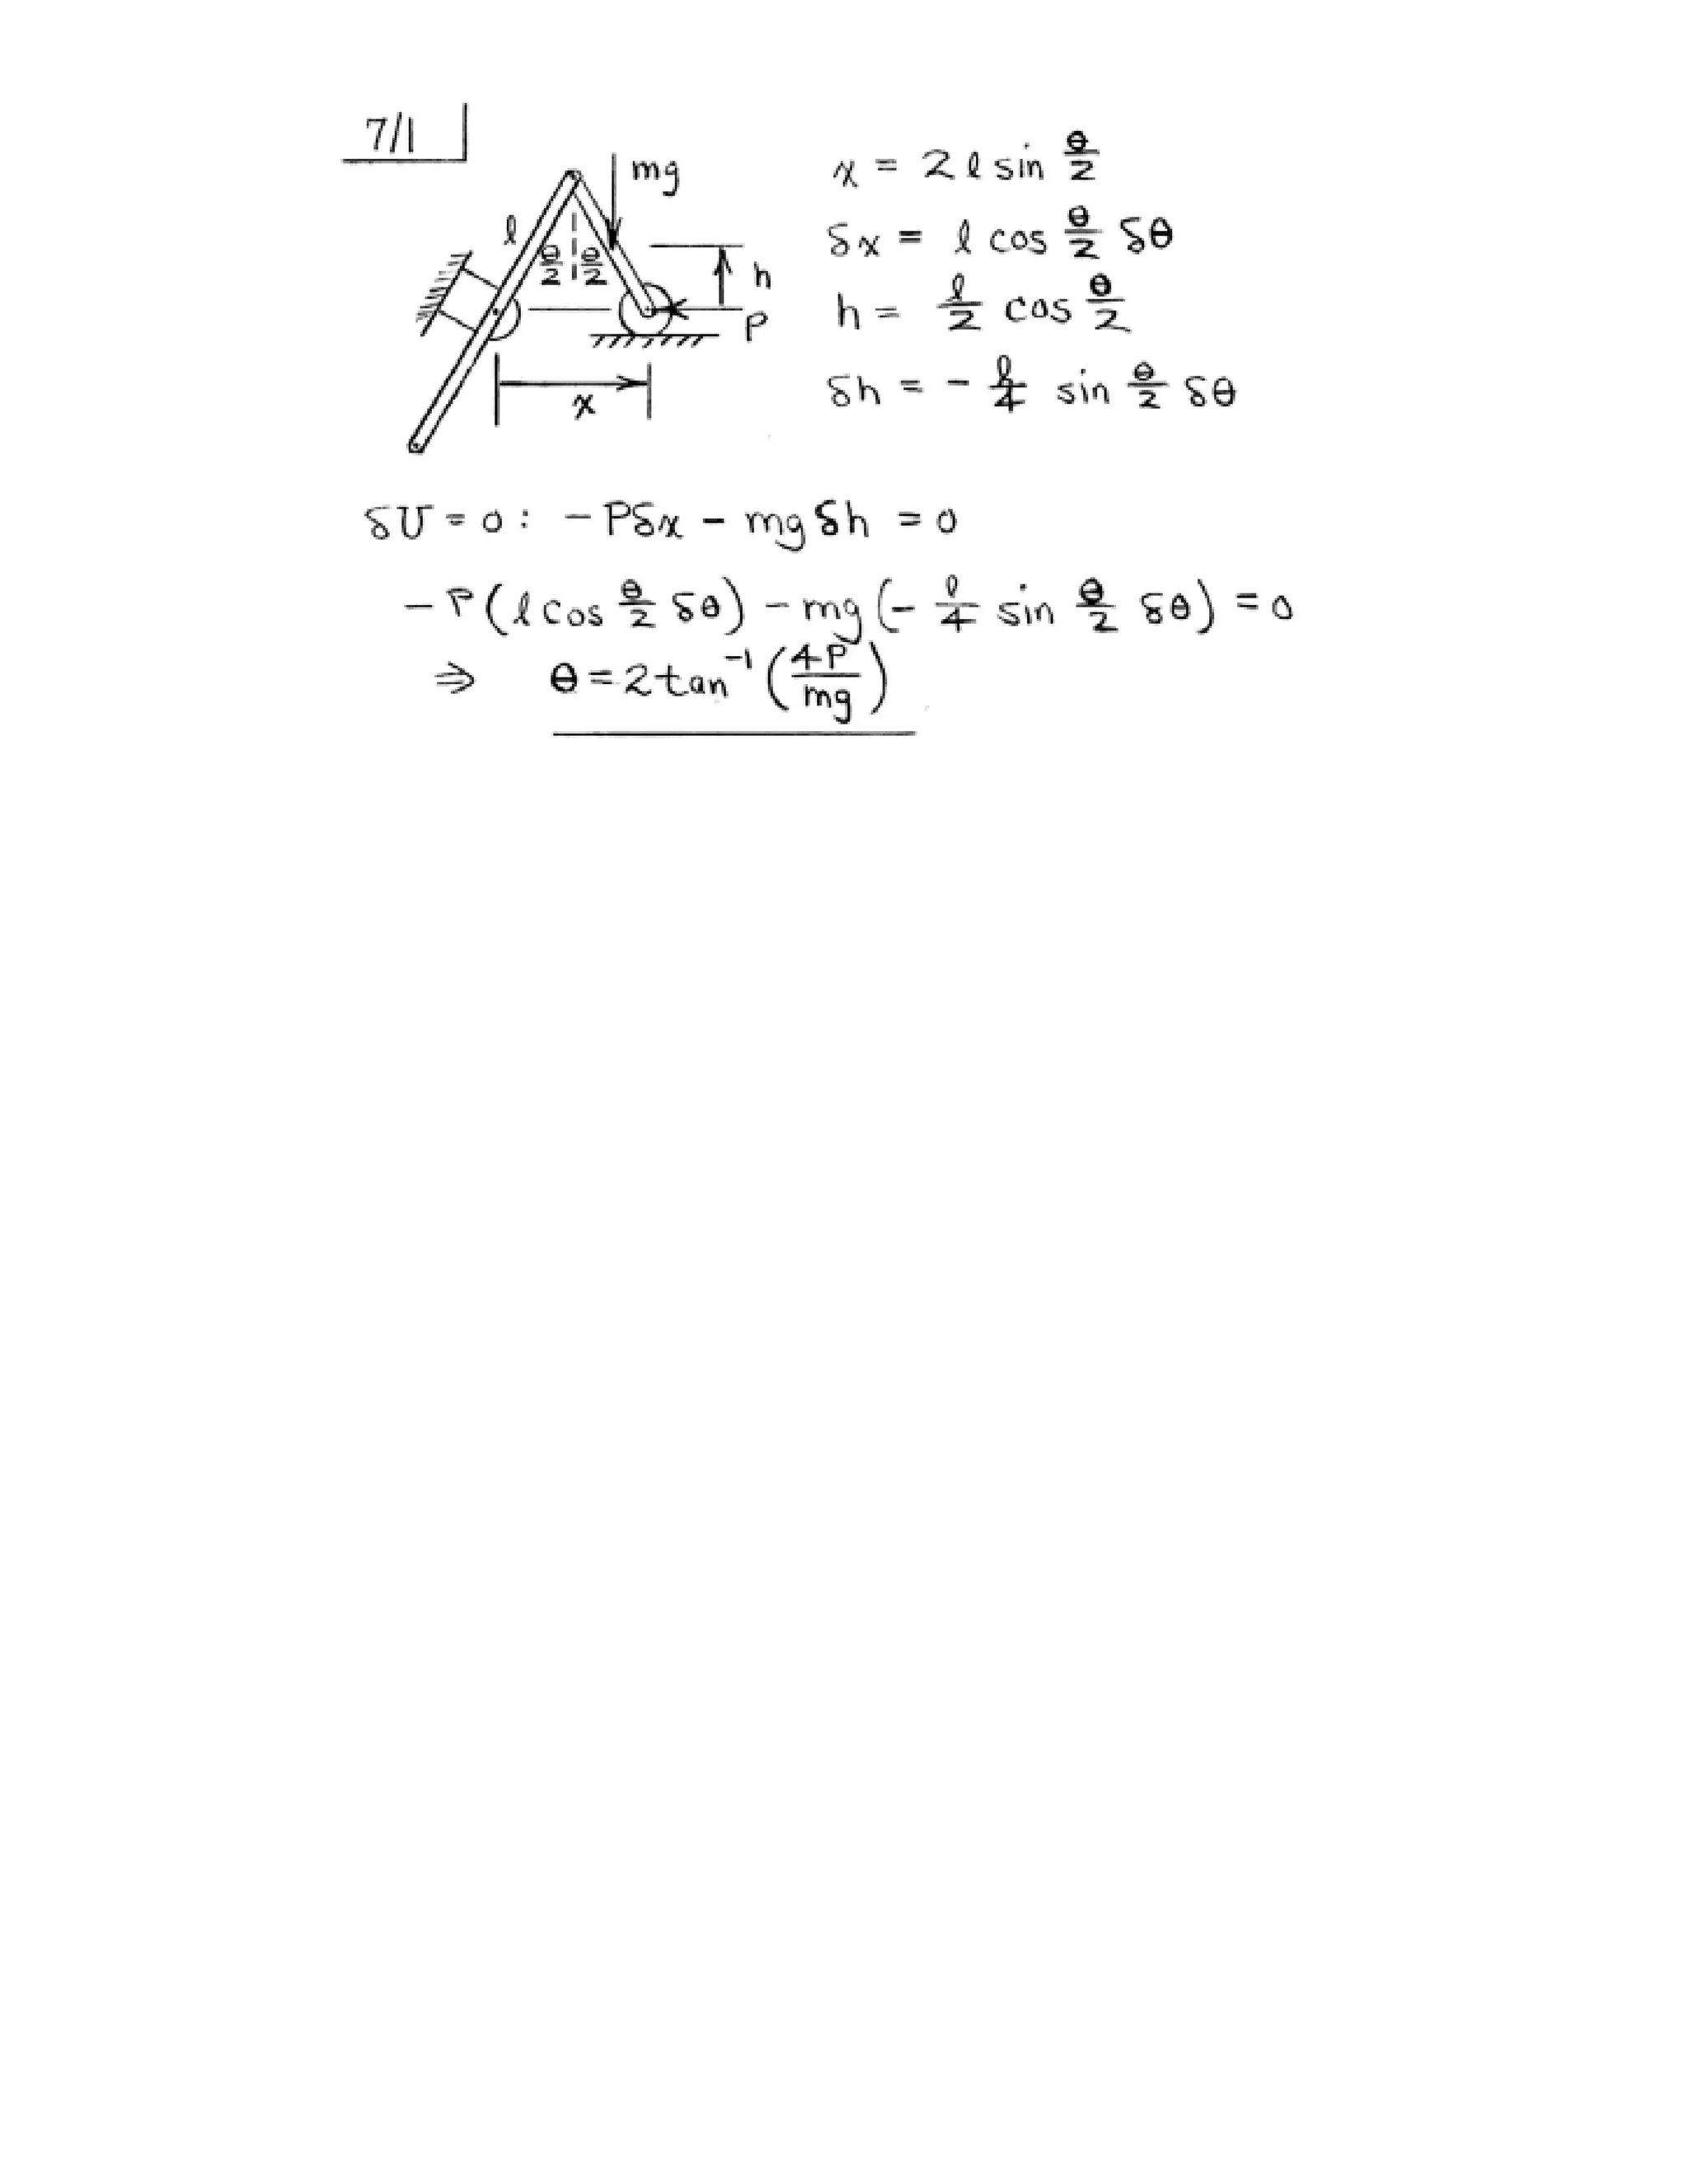 7/1
mg
l
θ/2 θ/2
h
P
x
x = 2 l sin θ/2
δx = l cos θ/2 δθ
h = l/2 cos θ/2
δh = - l/4 sin θ/2 δθ
δU = 0 : - Pδx - mg δh = 0
- P (l cos θ/2 δθ) - mg (- l/4 sin θ/2 δθ) = 0
⇒ θ = 2 tan⁻¹ (4P/mg)